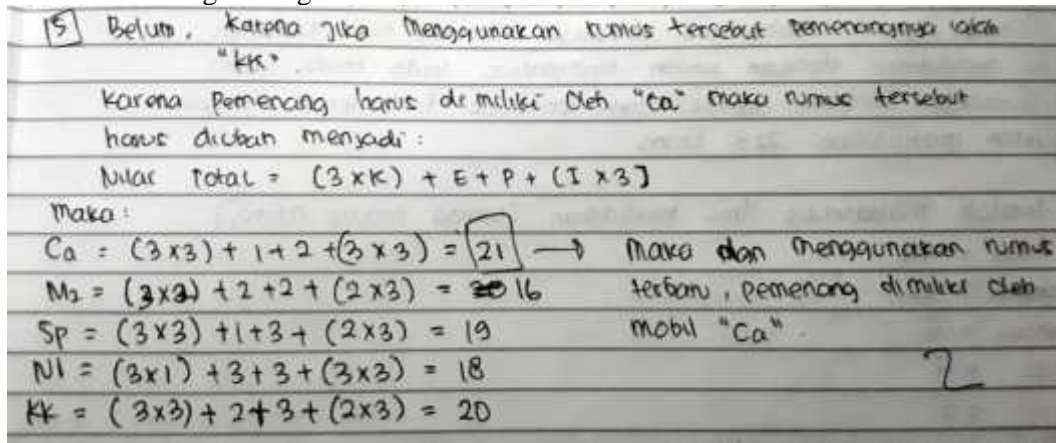 15 Belum, karena jika menggunakan rumus tersebut pemenangnya ialah
"KK".
Karena pemenang harus di miliki oleh "Ca" maka rumus tersebut
harus diubah menjadi :
Nilai Total = (3 x K) + E + P + (I x 3)
Maka :
Ca = (3x3) + 1 + 2 + (3 x 3) = 21 → Maka dan menggunakan rumus
M2 = (3x2) + 2 + 2 + (2 x3) = 16 terbaru, pemenang dimiliki oleh
Sp = (3x3) + 1 + 3 + (2x3) = 19 mobil "Ca".
NI = (3x1) + 3 + 3 + (3x3) = 18 2
KK = (3x3) + 2 + 3 + (2x3) = 20